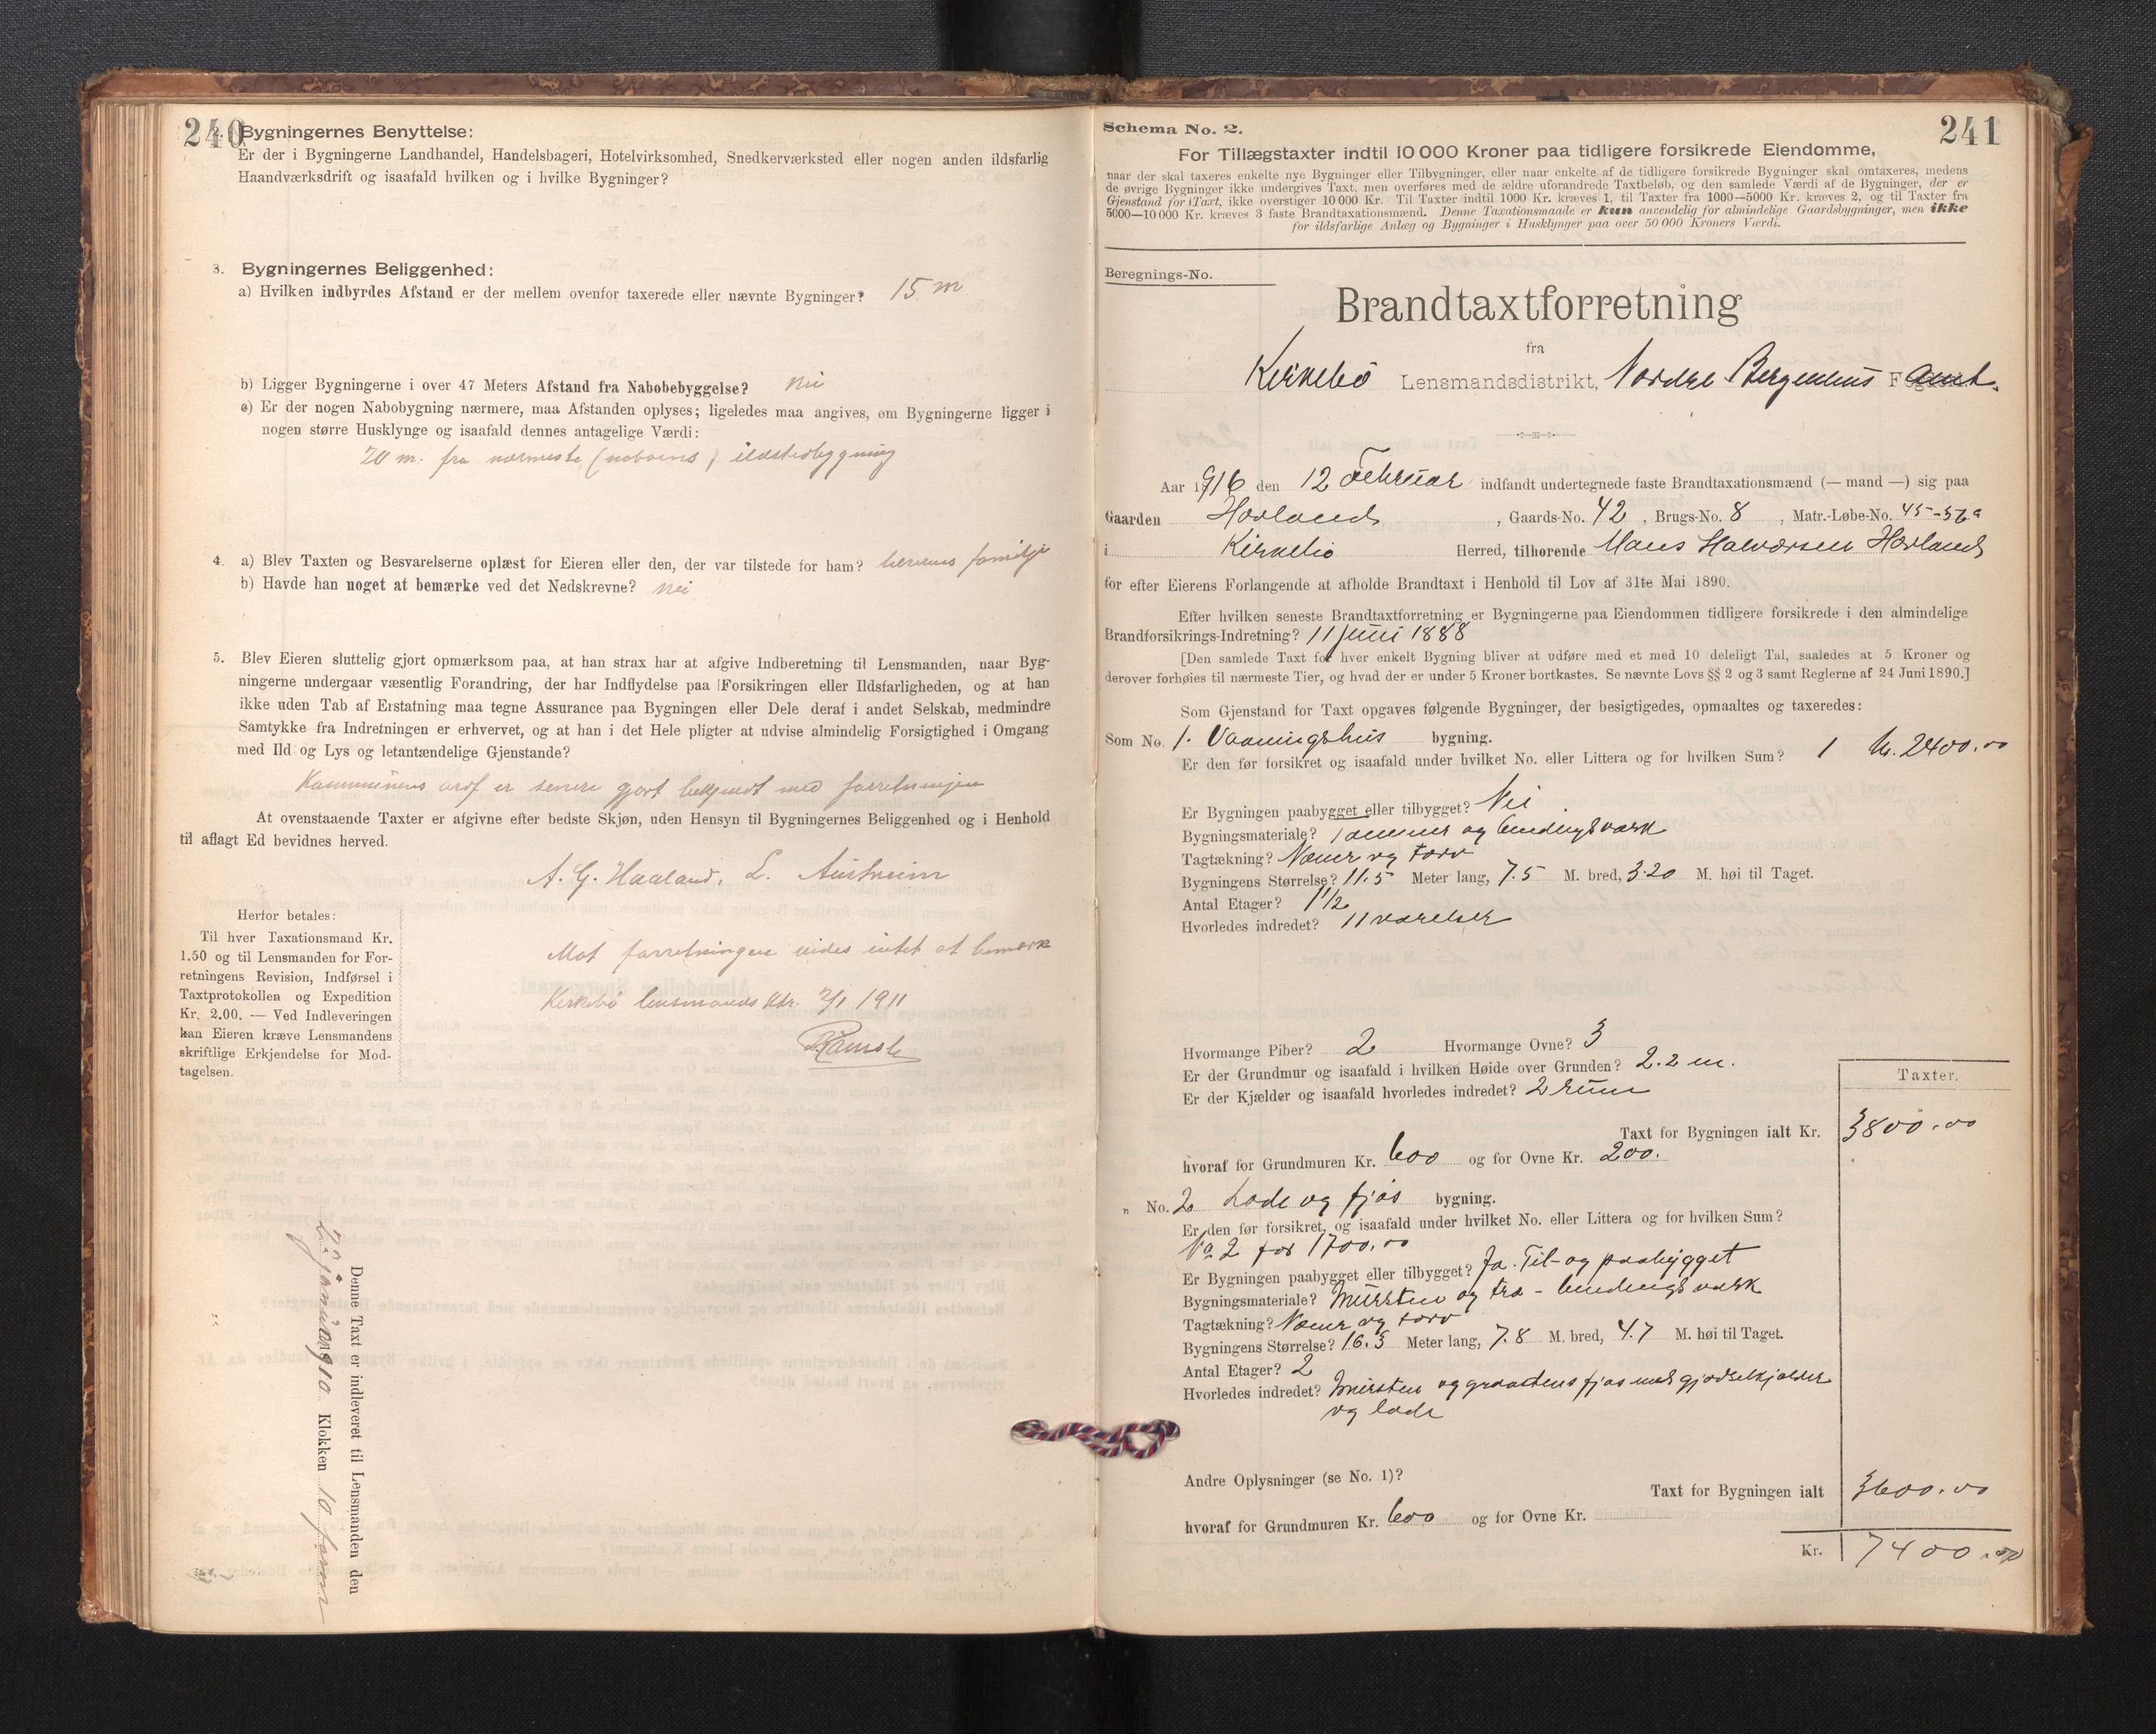 240
2. Bygningernes Benyttelse:
Er der i Bygningerne Landhandel, Handelsbageri, Hotelvirksomhed, Snedkerværksted eller nogen anden ildsfarlig
Haandværksdrift og isaafald hvilken og i hvilke Bygninger?
3. Bygningernes Beliggenhed:
a) Hvilken indbyrdes Afstand er der mellem ovenfor taxerede eller nævnte Bygninger? 15 m
b) Ligger Bygningerne i over 47 Meters Afstand fra Nabobebyggelse? nei
c) Er der nogen Nabobygning nærmere, maa Afstanden oplyses; ligeledes maa angives, om Bygningerne ligger i
nogen større Husklynge og isaafald dennes antagelige Værdi:
20 m. fra nærmeste (naboens) ildstedbygning
4. a) Blev Taxten og Besvarelserne oplæst for Eieren eller den, der var tilstede for ham? familje
b) Havde han noget at bemærke ved det Nedskrevne? nei
5. Blev Eieren sluttelig gjort opmærksom paa, at han strax har at afgive Indberetning til Lensmanden, naar Byg-
ningerne undergaar væsentlig Forandring, der har Indflydelse paa Forsikringen eller Ildsfarligheden, og at han
ikke uden Tab af Erstatning maa tegne Assurance paa Bygningen eller Dele deraf i andet Selskab, medmindre
Samtykke fra Indretningen er erhvervet, og at han i det Hele pligter at udvise almindelig Forsigtighed i Omgang
med Ild og Lys og letantændelige Gjenstande?
Kommunens ordf er senere gjort bekjendt med forretningen
At ovenstaaende Taxter er afgivne efter bedste Skjøn, uden Hensyn til Bygningernes Beliggenhed og i Henhold
til aflagt Ed bevidnes herved.
A. G. Haaland. L. Austreim
Herfor betales:
Til hver Taxationsmand Kr.
1.50 og til Lensmanden for For-
retningens Revision, Indførsel i
Taxtprotokollen og Expedition
Kr. 2.00. — Ved Indleveringen
kan Eieren kræve Lensmandens
skriftlige Erkjendelse for Mod-
tagelsen.
Mot forretningen vides intet at bemærk
Kirkebø lensmands ktr. 2/1 1911
Denne Taxt er indleveret til Lensmanden den
2 januar 1910 Klokken 10 form
241
Schema No. 2.
For Tillægstaxter indtil 10 000 Kroner paa tidligere forsikrede Eiendomme,
naar der skal taxeres enkelte nye Bygninger eller Tilbygninger, eller naar enkelte af de tidligere forsikrede Bygninger skal omtaxeres, medens
de øvrige Bygninger ikke undergives Taxt, men overføres med de ældre uforandrede Taxtbeløb, og den samlede Værdi af de Bygninger, der er
Gjenstand for Taxt, ikke overstiger 10 000 Kr. Til Taxter indtil 1000 Kr. kræves 1, til Taxter fra 1000—5000 Kr. kræves 2, og til Taxter fra
5000—10 000 Kr. kræves 3 faste Brandtaxationsmænd. Denne Taxationsmaade er kun anvendelig for almindelige Gaardsbygninger, men ikke
for ildsfarlige Anlæg og Bygninger i Husklynger paa over 50 000 Kroners Værdi.
Beregnings-No.
Brandtaxtforretning
fra
Kirkebø Lensmandsdistrikt, Nordre Bergenhus amt.
Aar 1916 den 12 Februar indfandt undertegnede faste Brandtaxationsmænd (— mand —) sig paa
Gaarden Hovland, Gaards-No. 42, Brugs-No. 8, Matr.-Løbe-No. 45-56a
i Kirkebø Herred, tilhørende Mons Halvorsen Hovland
for efter Eierens Forlangende at afholde Brandtaxt i Henhold til Lov af 31te Mai 1890.
Efter hvilken seneste Brandtaxtforretning er Bygningerne paa Eiendommen tidligere forsikrede i den almindelige
Brandforsikrings-Indretning? 11 juni 1888
[Den samlede Taxt for hver enkelt Bygning bliver at udføre med et med 10 deleligt Tal, saaledes at 5 Kroner og
derover forhøies til nærmeste Tier, og hvad der er under 5 Kroner bortkastes. Se nævnte Lovs §§ 2 og 3 samt Reglerne af 24 Juni 1890.]
Som Gjenstand for Taxt opgaves følgende Bygninger, der besigtigedes, opmaaltes og taxeredes:
Som No. 1. Vaaningshus bygning.
Er den før forsikret og isaafald under hvilket No. eller Littera og for hvilken Sum? 1 kr. 2400.00
Er Bygningen paabygget eller tilbygget? Nei
Bygningsmateriale? Tømmer og bindingsværk
Tagtækning? Næver og torv
Bygningens Størrelse? 11.5 Meter lang, 7.5 M. bred, 3.20 M. høi til Taget.
Antal Etager? 1 1/2
Hvorledes indredet? 11 værelser
Hvormange Piber? 2 Hvormange Ovne? 3
Er der Grundmur og isaafald i hvilken Høide over Grunden? 2.2 m.
Er der Kjælder og isaafald hvorledes indredet? 2 rum
Taxter.
Taxt for Bygningen ialt Kr. 3800.00
hvoraf for Grundmuren Kr. 600 og for Ovne Kr. 200.
" No. 2 Lade og fjøs bygning.
Er den før forsikret, og isaafald under hvilket No. eller Littera og for hvilken Sum?
No 2 for 1700.00
Er Bygningen paabygget eller tilbygget? Ja. Til- og paabygget
Bygningsmateriale? Mursten og træ - bindingsværk
Tagtækning? Næver og torv
Bygningens Størrelse? 16.3 Meter lang, 7.8 M. bred, 4.7 M. høi til Taget.
Antal Etager? 2
Hvorledes indredet? Mursten og graastens fjøs med gjødselkjælder
og lade
Andre Oplysninger (se No. 1)?
Taxt for Bygningen ialt 3600.00
hvoraf for Grundmuren Kr. 600 og for Ovne Kr.
Kr. 7400.00